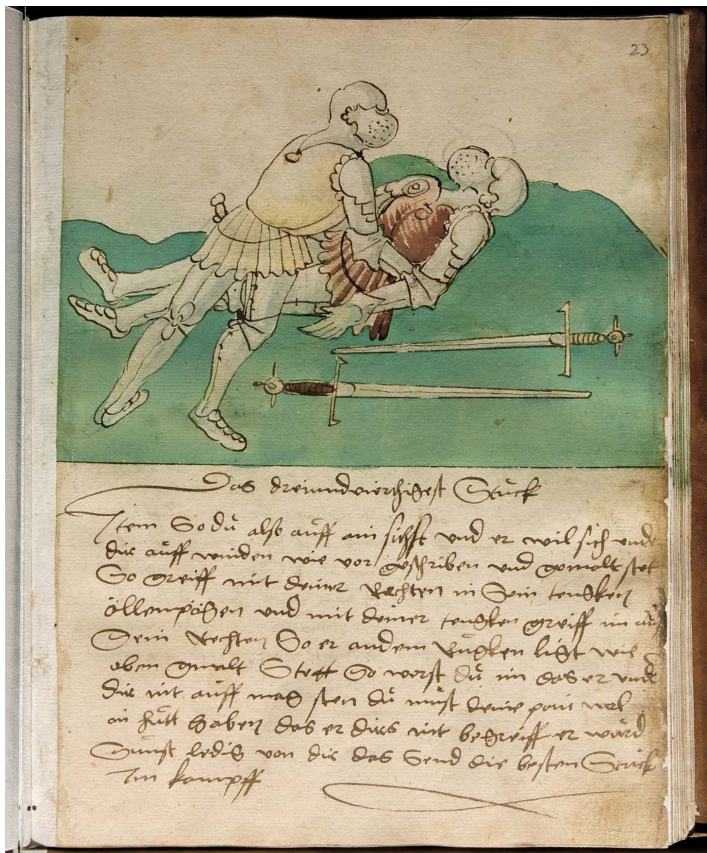 23
Das dreiundvierzigest Stuck
Item So du also auff aim sichst und er wil sich unde
dir auff winden wie vor geschriben und gemalt stet
So greiff mit deiner Rechten in Sein tengken
öllenpogen und mit deiner tengken greiff im
Sein Rechten So er an dem Rugken ligt wie
oben gmalt Stett So werst du im das er und
dir nit auff mag sten du must deine pain wol
in hutt haben das er dirs nit begreiff erward
Sunst ledig von dir das Send die besten Stuck
Im kampff